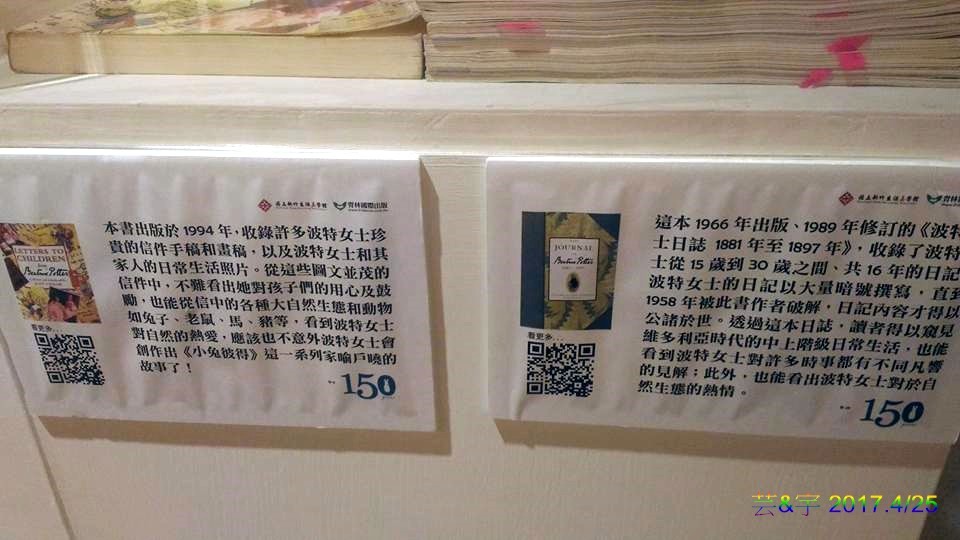 國立新竹生活美學館
青林國際出版
LETTERS TO
CHILDREN
from
Beatrix Potter
本書出版於 1994 年，收錄許多波特女士珍
貴的信件手稿和畫稿，以及波特女士和其
家人的日常生活照片。從這些圖文並茂的
信件中，不難看出她對孩子們的用心及鼓
勵，也能從信中的各種大自然生態和動物
如兔子、老鼠、馬、豬等，看到波特女士
對自然的熱愛，應該也不意外波特女士會
創作出《小兔彼得》這一系列家喻戶曉的
故事了！
看更多...
150
國立新竹生活美學館
青林國
JOURNAL
Beatrix Potter
這本 1966 年出版、1989 年修訂的《波特
士日誌 1881 年至 1897 年》，收錄了波特
士從 15 歲到 30 歲之間、共 16 年的日記
波特女士的日記以大量暗號撰寫，直到
1958 年被此書作者破解，日記內容才得以
公諸於世。透過這本日誌，讀者得以窺見
維多利亞時代的中上階級日常生活，也能
看到波特女士對許多時事都有不同凡響
的見解；此外，也能看出波特女士對於自
然生態的熱情。
看更多...
150
芸&宇 2017.4/25